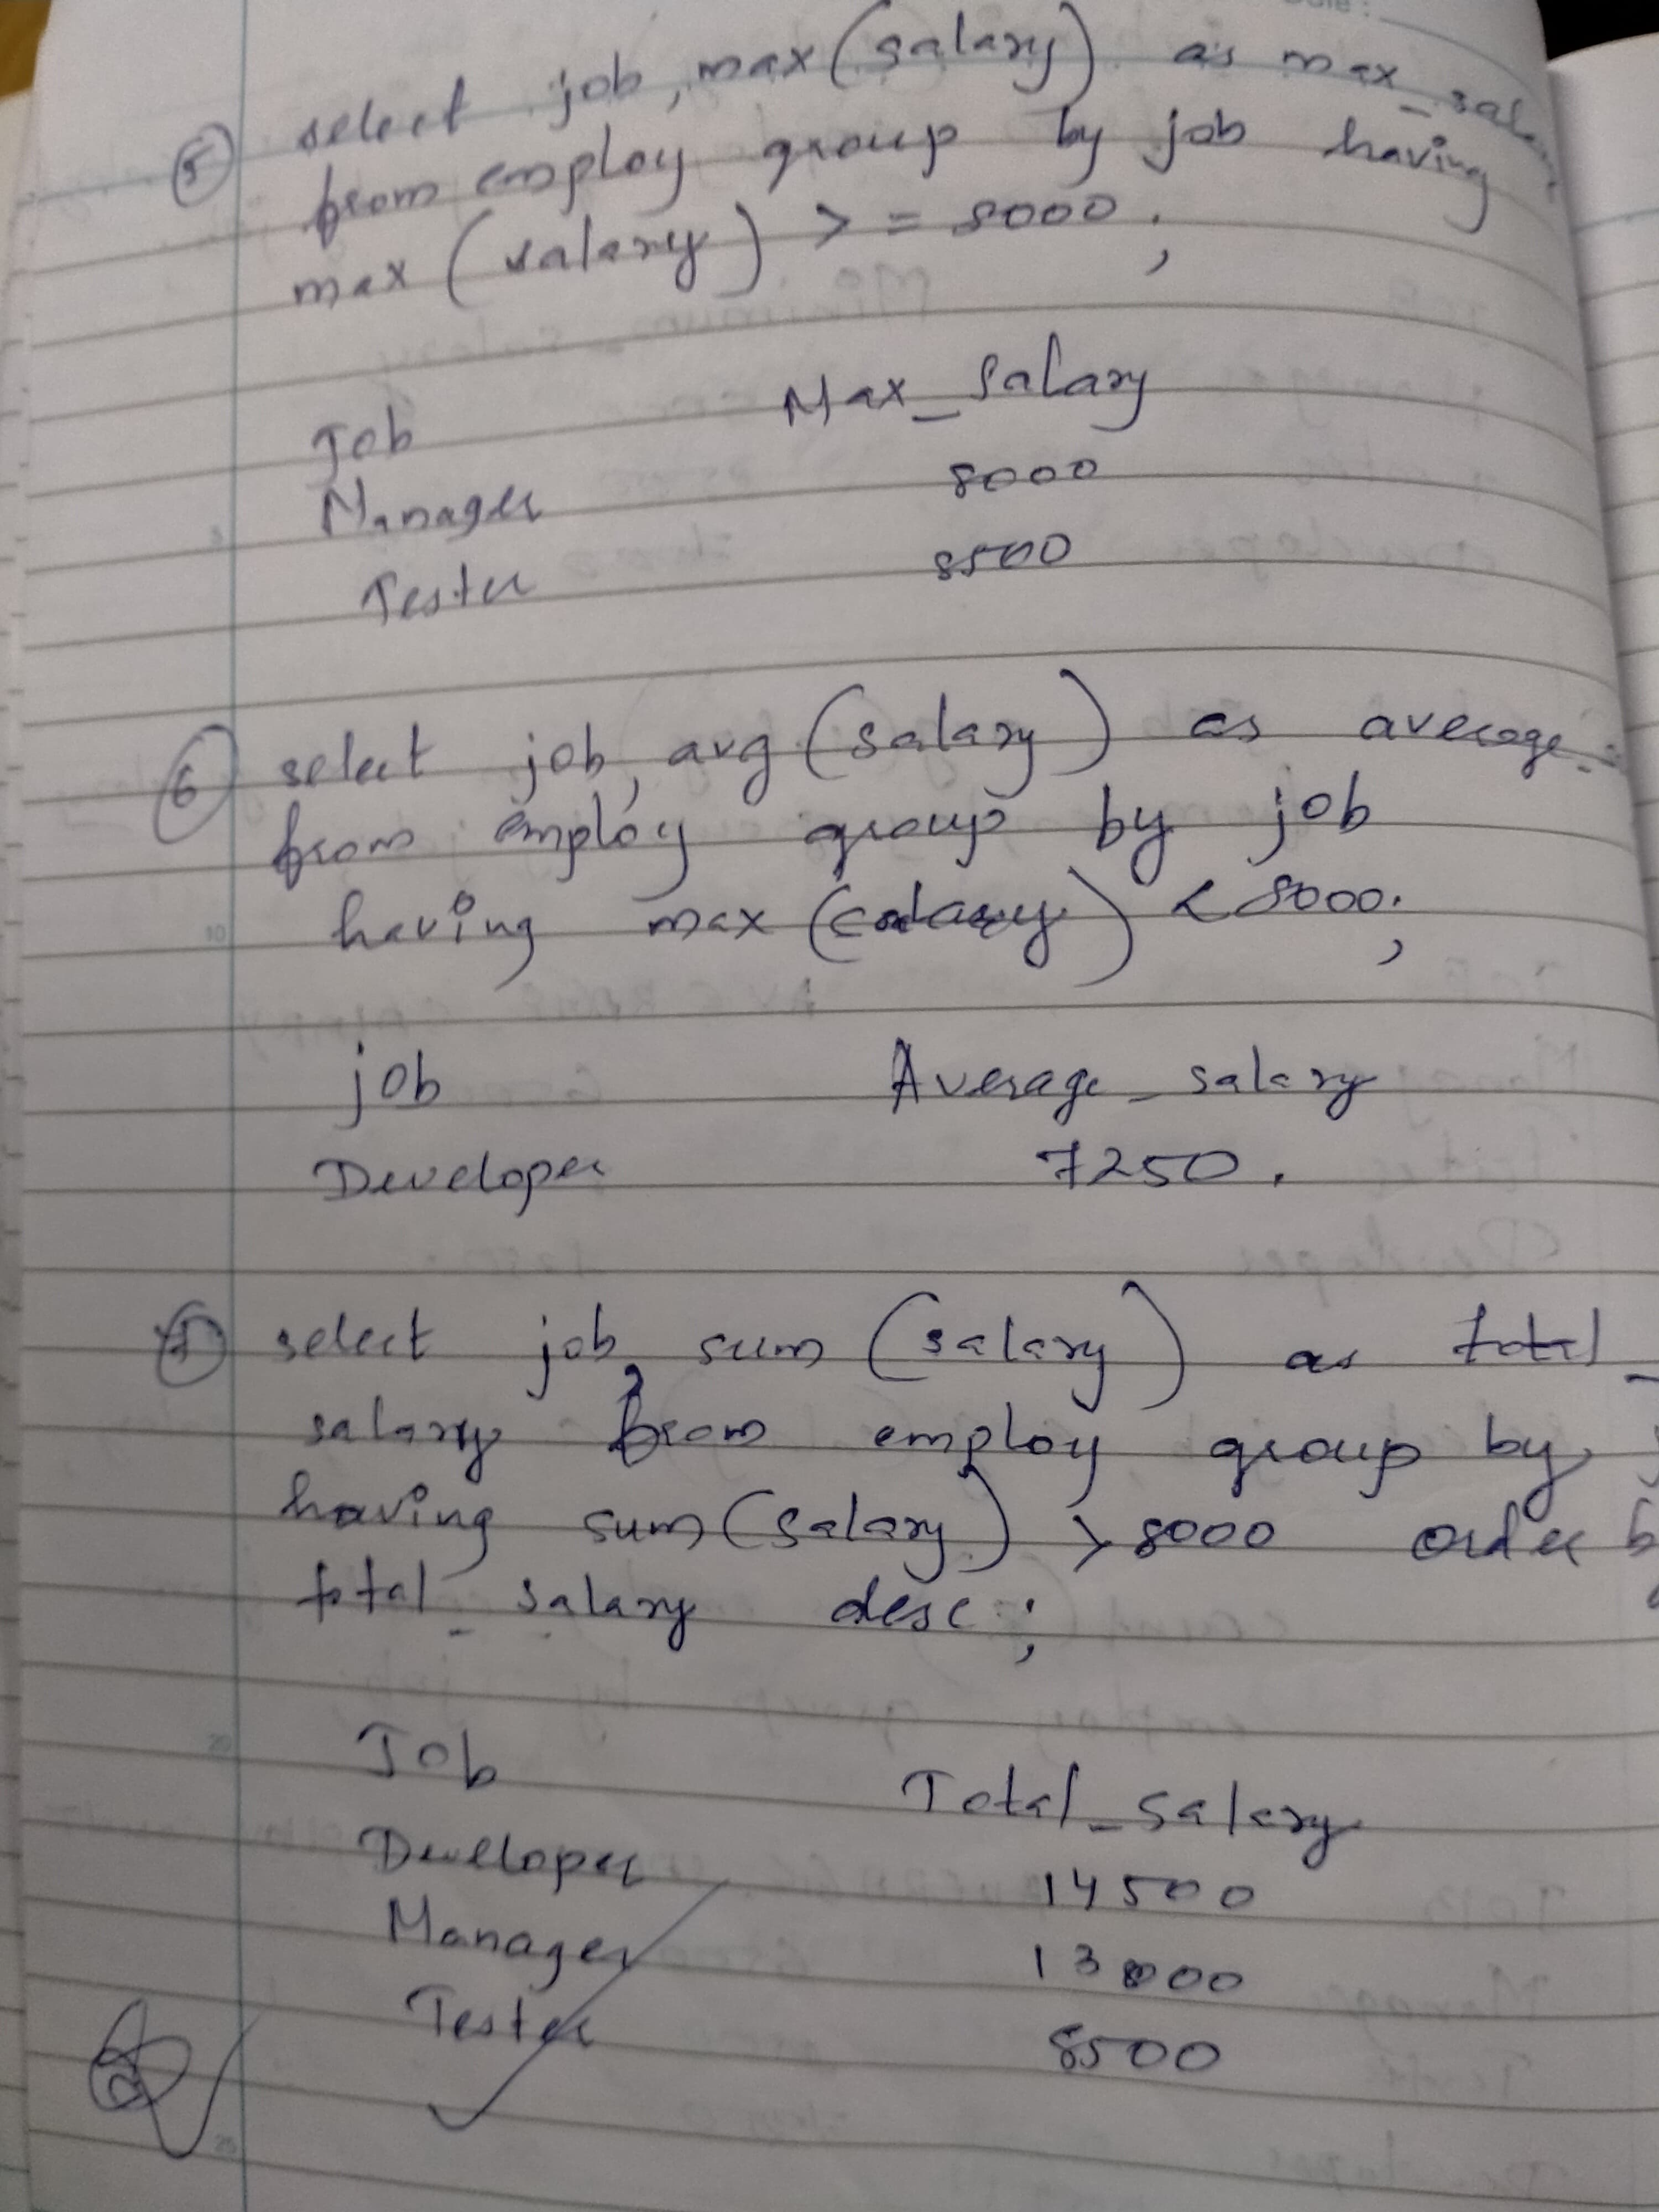 Date :
5 select job, max(salary) as max_sal
from employ group by job having
max (salary) >= 8000;
Job Max_Salary
Manager 8000
Tester 8500
6 select job, avg (salary) as average_
from employ group by job
having max (salary) < 8000;
job Average_salary
Developer 7250.
7 select job, sum (salary) as total_
salary from employ group by
having sum(salary) > 8000 order b
total_salary desc;
Job Total_Salary
Developer 14500
Manager 13000
Tester 8500